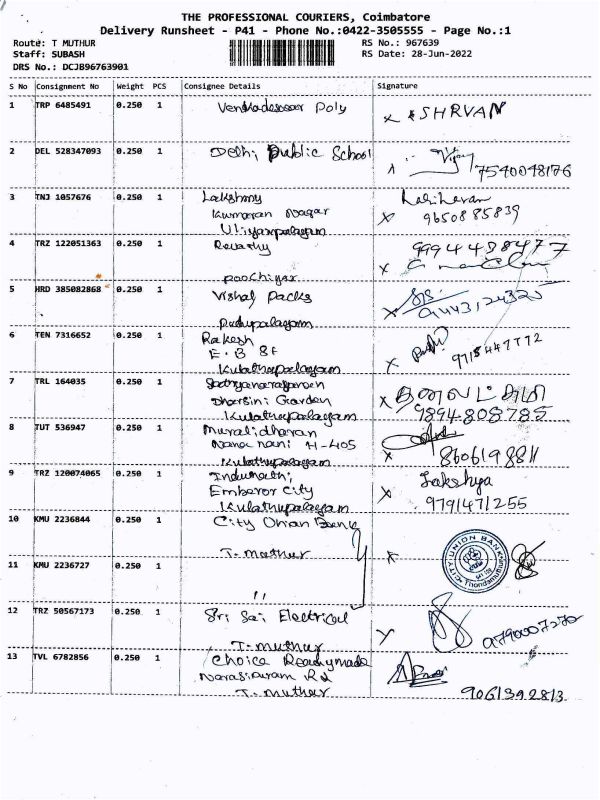 THE PROFESSIONAL COURIERS, Coimbatore
Delivery Runsheet - P41 - Phone No.:0422-3505555 - Page No.:1
Route: T MUTHUR
RS No.: 967639
Staff: SUBASH
RS Date: 28-Jun-2022
DRS No.: DCJB96763901
S No Consignment No Weight PCS Consignee Details Signature
1 TRP 6485491 0.250 1 Poly SHRVAN
2 DEL 528347093 0.250 1 Delhi Public School
7540048176
3 TNJ 1057676 0.250 1 Lakshmy Hariharan
Kumaran Nagar 9650885839
Uliyampalayam
4 TRZ 122051363 0.250 1 Revathy 9994498477
Poochiyur
5 HRD 385082868 0.250 1 Vishal Packs
9443124325
Pudupalayam
6 TEN 7316652 0.250 1 Rakesh
E.B 8F 9715447772
Kulathupalayam
7 TRL 164035 0.250 1
Dharsini Garden
Kulathupalayam 9894808785
8 TUT 536947 0.250 1 Muralidharan
Nana nani H-405
Kulathupalayam 8606198811
9 TRZ 120074065 0.250 1 Indumathi, Lakshya
Emberor City
Kulathupalayam 9791471255
10 KMU 2236844 0.250 1 City Union Bank
T. muthur
CITY UNION BANK
Thondamuthur
11 KMU 2236727 0.250 1
"
12 TRZ 50567173 0.250 1 Sri Sai Electrical
9790007270
T. muthur
13 TVL 6782856 0.250 1 Choice Readymade
Narasipuram Rd
T. muthur 9061392813